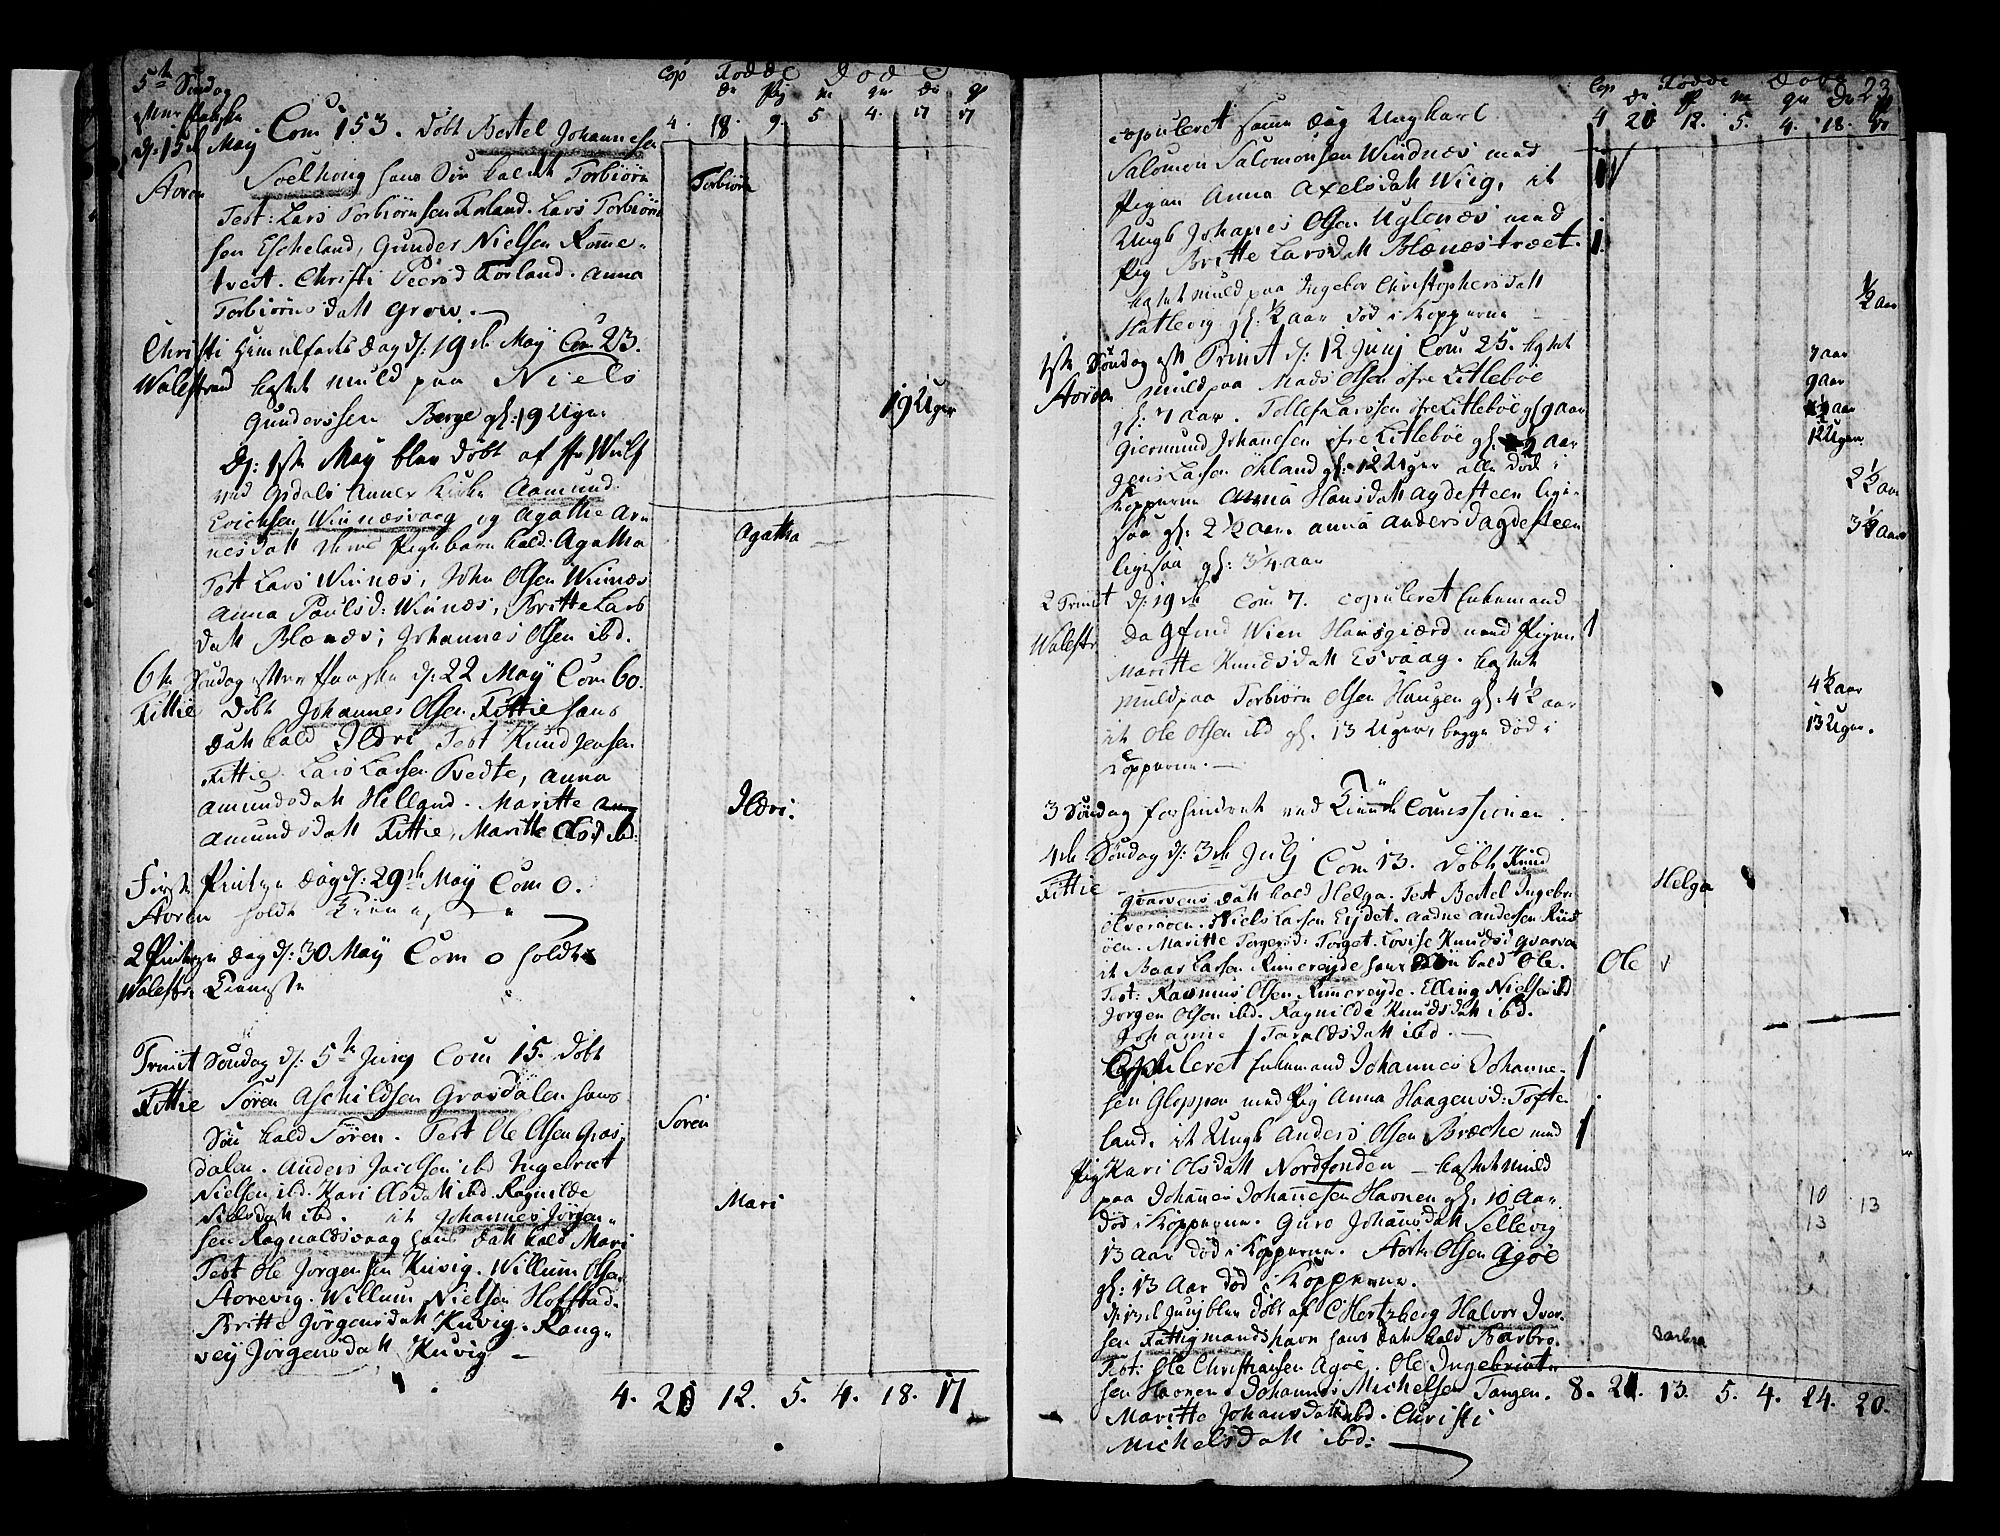 5te Søndag
efter Paaske
d: 15d May Com 153. døbt Bertel Johannesen
Storøen Soelhoug hans Søn kaldt Torbiørn
Test: Lars Torbiørnsen Forland. Lars Torbiørn
sen Escheland, Gunder Nielsen Romme-
tvest. Christi Peersd Forland. Anna
Torbiørnsdatt Grow.
Christi Himmelfarts dag d: 19de May Com 23.
Walestrand kastet muld paa Niels
Gunderssen Berge gl: 19 Uger
D: 1ste May blev døbt af Hr Wulf
ved Annex Kirke Aamund
Erichsen Winnæsvaag og Agathe Ar
nesdatt Pigebarn kald: Agatha
Test Lars Winnæs, John Olsen Winnæs
Anna Poulsd: Winnæs, Britte Lars
datt Blænæs, Johannes Olsen ibd.
6te Søndag efter Paaske d: 22 May Com 60.
Fittie døbt Johannes Olsen Fittie hans
datt kald Ildri Test Knud Jensen
Fittie. Lars Larsen Tvedte, Anna
Amundsdatt Helland. Maritte
Amundsdatt Fittie, Maritte Olsd ibd:
Første Pintze dag d: 29de May Com 0.
Storøen holdt
2 Pintze dag d: 30 May Com 0 holdt
Walestr
Trinit Søndag d: 5te Junj Com 15. døbt
Fittie Søren Aschildsen Grasdalen hans
Søn kald Søren. Test Ole Olsen Gras-
dalen. Anders Jacobsen ibd Ingebrict
Nielsen ibd. Kari Olsdatt ibd. Ragnilde
Nielsdatt ibd. it Johannes Jørgen-
sen Ragnaldsvaag hans datt kald Mari
Test Ole Jørgensen Kuvig. Willum Olsen
Storevig. Willum Nielsen Hofstad.
Britte Jørgensdatt Kuvig. Rang-
vej Jørgensdatt Kuvig
Cop Fødde Døde
dr Pig m qv dr p
4. 18. 9. 5 4. 17 17
Torbiørn
19 Uger
Agatha
Ildri.
Søren
Mari
4. 20 12. 5. 4. 18. 17
23
Cop Fødde Døde
dr p m qv dr p
4 20 12. 5. 4. 18. 17
copuleret samme dag Ungkarl
Salomon Salomonsen Windnæs med
Pigen Anna Axelsdatt Wiig, it
Ungk Johanes Olsen Uglenæs med
Pig Britte Larsdatt Blænæstræet.
kastet muld paa Ingebor Christophersdatt
Hatlevig gl: ½ aar død i Kopperne
1ste Søndag eft Trinit d: 12 Junj Com 25. kastet
Storøen muld paa Mads Olsen øfre Litleböe
gl: 7 aar. Tollef Larssen øfre Litleböe gl 9 aar
Giermund Johannsen øfre Litleböe gl: 2 aar
Jens Larsen Økland gl: 12 Uger alle død i
Kopperne Anna Hansdatt Agdesteen lige-
saa gl: 2½ aar. Anna Andersd Agdesteen
ligesaa gl: 3¼ aar
2 Trinit d: 19de Com 7. copuleret Enkemand
Walestr Dagfind Wien Hansgiærd med Pigen
Maritte Knudsdatt Esvaag. kastet
muld paa Torbiørn Olsen Haugen gl: 4½ aar
it Ole Olsen ibd gl. 13 Uger, begge død i
Kopperne.
3 Søndag forhindret ved Comissionen.
4de Søndag d: 3de Julj Com 13. døbt Knud
Fittie Qvarvens datt kald Helga. Test Bertel Ingebri
Olversøen. Niels Larsen Eydet. Aadne Andersen
øen. Maritte Torgersd: Torget. Lovise Knudsd Qvarven
it Baar Larsen Rimereyde hans Søn kald Ole.
Test: Rasmus Olsen Rimereyde. Elling Nielsen ibd
Jørgen Olsen ibd. Ragnilde Knudsdatt ibd.
Johanne Taraldsdatt ibd.
Copuleret Enkemand Johannes Johanne-
sen Gloppen med Pig Anna Haagensd: Tofte
land. it Ungk Anders Olsen Bræcke med
Pig Kari Olsdatt Nordfonden - kastet muld
paa Johanes Johanesen Havnen gl: 10 Aar
død i Kopperne. Guro Johansdatt Sellevig
13 aar død i Kopperne. Olsen Agöe
gl: 13 Aar død i Kopperne.
Junj blev døbt af C Hertzberg Halvor Iver-
sen Fattigmandshavn hans datt kald Barbro
Test: Ole Christiansen Agöe. Ole Ingebrict-
sen Havnen. Johannes Michelsen Tangen.
Maritte Johansdatt ibd. Christi
Michelsdatt ibd:
½ aar
7 aar
9 aar
2 aar
12 Uger
2½ aar
3¼ aar
4½ aar
13 Uger.
Helga
Ole
10
13 13
Barbra
8. 21. 13. 5. 4. 24. 20.